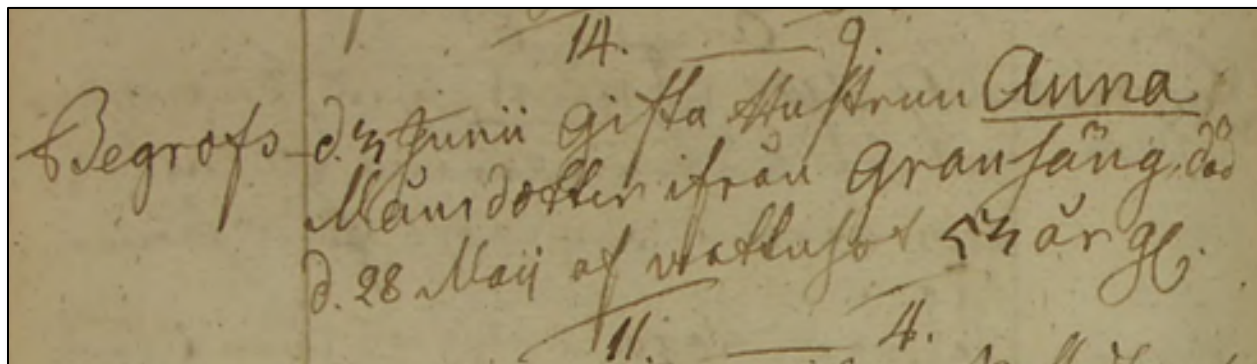 14. — 9.
Begrofs d. 3 Junii gifta Hustrun Anna
Månsdotter ifrån Gransäng, död
d. 28 Maij af wattusot 53 år gl.
11. — 4.